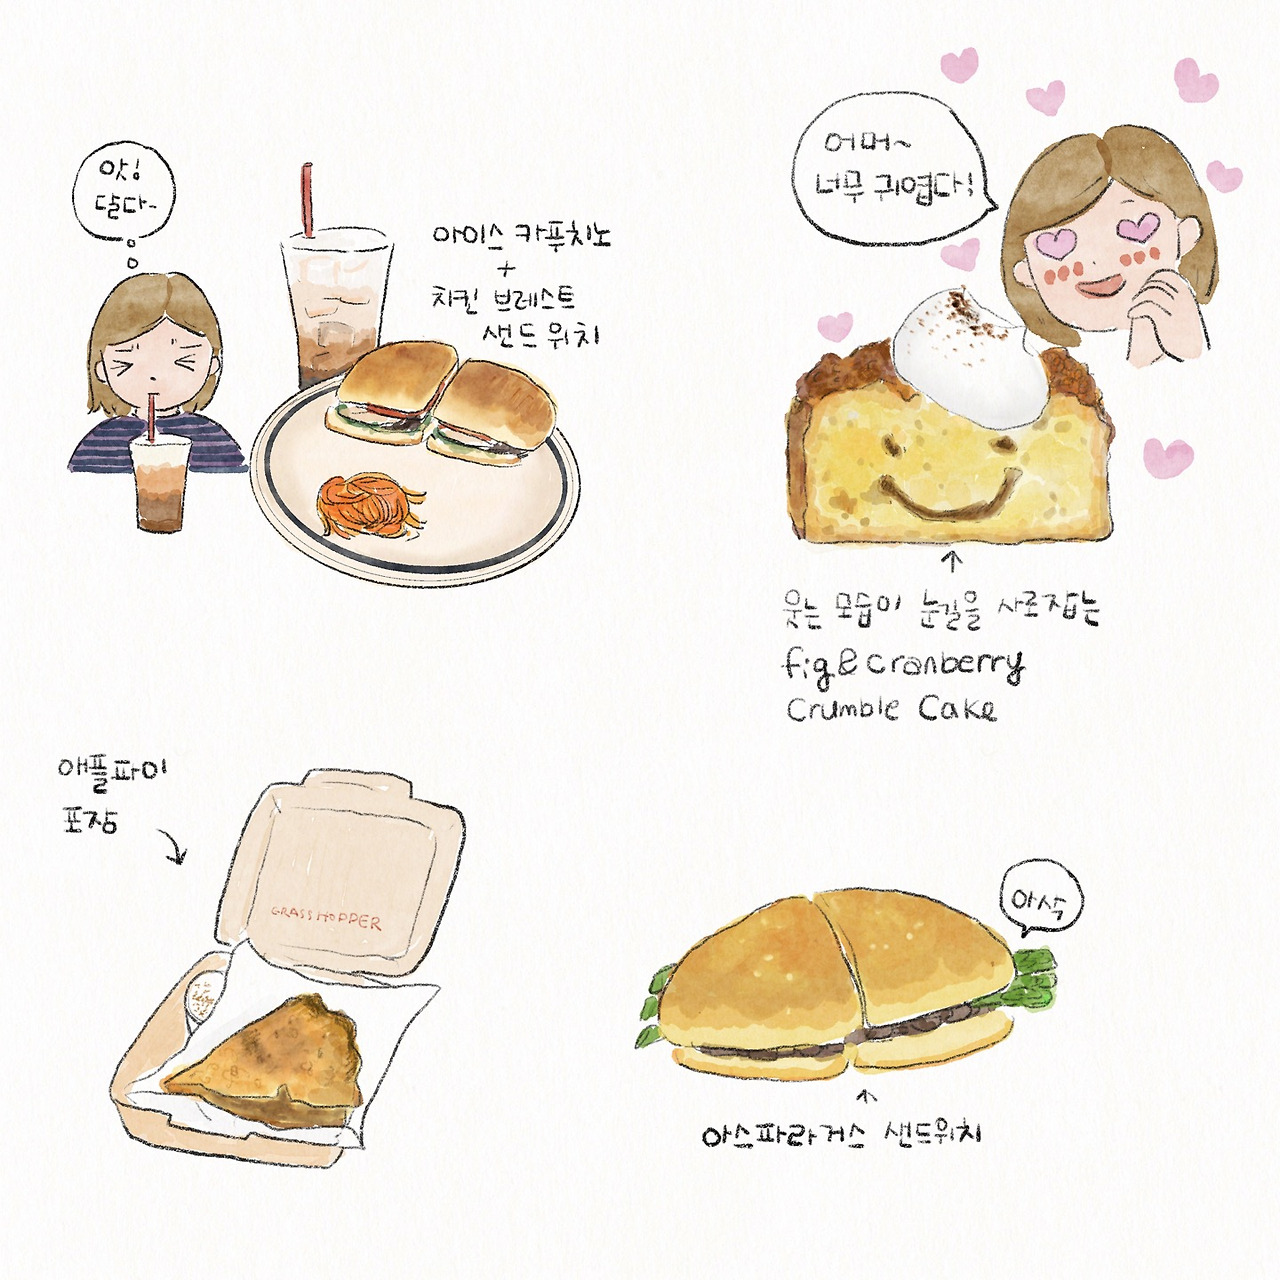 앗!
달다~
아이스 카푸치노
+
치킨 브레스트
샌드위치
어머~
너무 귀엽다!
웃는 모습이 눈길을 사로잡는
fig&cranberry
Crumble Cake
애플파이
포장
GRASSHOPPER
아삭
아스파라거스 샌드위치